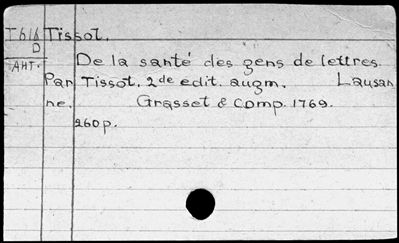 I616 Tissot.
D
AHT.
De la santé des gens de lettres.
Par Tissot. 2de edit. augm. Lausan
ne. Grasset & Comp. 1769.
260p.